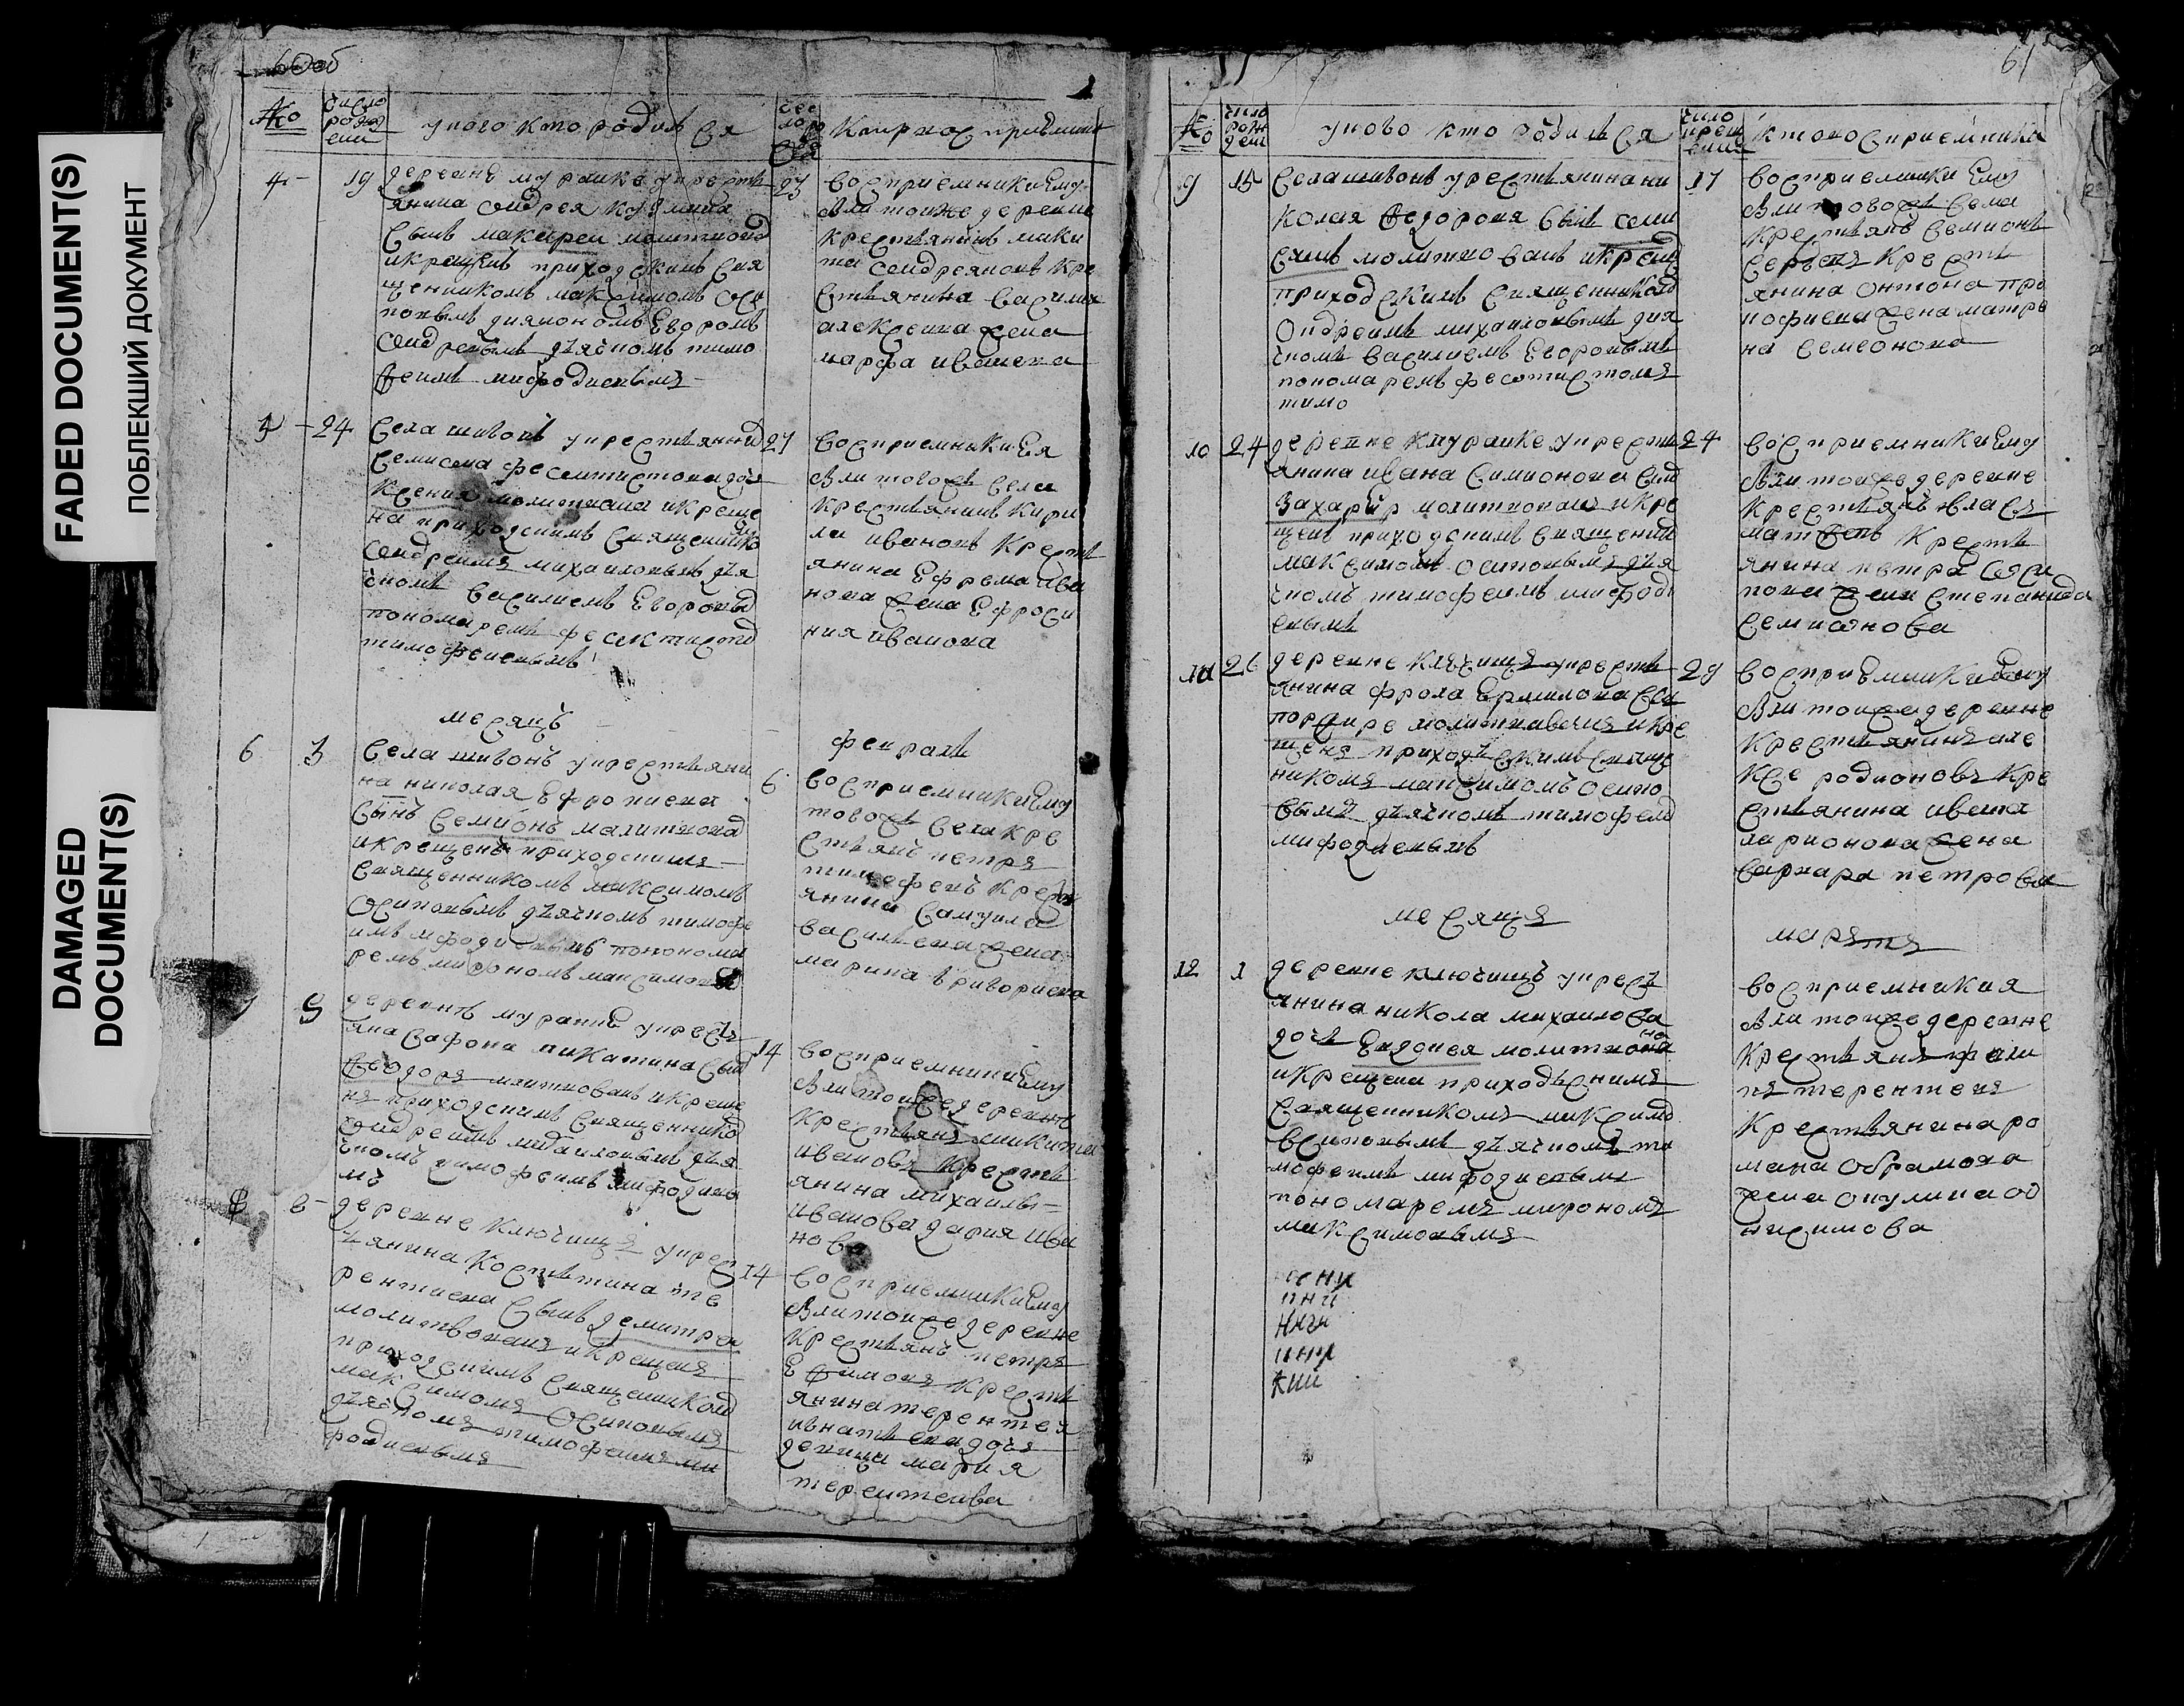 FADED DOCUMENT(S)
ПОБЛЕКШИЙ ДОКУМЕНТ
DAMAGED
DOCUMENT(S)
60об
число
рожд
ени
у ково кто родился
4
19
деревнѣ муранке у крестъ
янина андрея кузмина
сынъ макареи молитвова
и крещенъ приходскимъ свя
щенникомъ максимомъ оси
повымъ диякономъ егоромъ
андреевымъ дьячкомъ тимо
феимъ мифодиевымъ
23
восприемники ему
были тоиже деревни
крестьянинъ ники
та андреяновъ кре
стьянина василия
алексеива жена
марфа иванова
5
24
села шивонъ у крестьянина
семиона феоктистова дочь
ксения молитвана и креще
на приходскимъ священнико
андреимъ михаиловымъ дья
чкомъ василиемъ егоровы
пономаремъ феоктисто
тимофеиевымъ
27
восприемники ея
были тогожъ села
крестьянинъ кири
ла ивановъ крестъ
янина ефрема ива
нова жена ефроси
ния иванова
месяцъ
февраль
6
3
села шивонъ у крестьяни
на николая ефропиева
сынъ семионъ малитвова
и крещенъ приходскимъ
священникомъ максимомъ
осиповымъ дьячкомъ тимофе
имъ мфодиевымъ понома
ремъ мирономъ максимовы
6
восприемники ему
тогожъ села кре
стьянъ петръ
тимофеевъ крестъ
янина самуила
василева жена
марина григориева
9
деревнѣ муранкѣ у крестъ
яна сафона никитина сын
феодоръ млитвованъ и креще
нъ приходскимъ священнико
андреимъ михаиловымъ дья
чкомъ тимофеимъ мифодиевы
мъ
14
восприемники ему
были тоижедеревни
крестьянъ никита
ивановъ крестъ
янина михаилы
иванова дария ива
нова
8
деревне ключищъ у крес
тьянина костентина те
рентиева сынъ демитреи
молитвованъ и крещенъ
приходскимъ священнико
максимомъ осиповымъ
дьячкомъ тимофеимъ ми
фодиевымъ
14
восприемники ему
были тоиже деревне
крестьянъ петръ
ефимовъ крестъ
янина терентея
игнатьева дочь
девица мария
терентеива
61
число
рож
дени
у ково кто родился
число
крещ
ения
кто восприемники
9
15
села шивонъ у крестьянина ни
колая федорова сынъ семи
онъ молитвованъ и крещ
приходскимъ священникомъ
андреимъ михаиловымъ дья
чкомъ василиемъ егоровымъ
пономаремъ феоктистомъ
тимо
17
восприемники ему
были тогожъ села
крестьянъ семионъ
сергеевъ крестъ
янина онтона про
кофиева жена матре
на семеонова
10
24
деревне кмуранке у крестъ
янина ивана симионова сын
захарыи молитвованъ и кре
щенъ приходскимъ священни
максимомъ осиповымъ дья
чкомъ тимофеимъ мифоди
евымъ
24
восприемники ему
были тоиже деревне
крестьянъ власъ
матвеевъ крестъ
янина петра оси
пова жена степанида
семионова
11
26
деревне ключищъ у крестъ
янина фрола ермилова сын
порфире молитвованъ и кре
щенъ приходскимъ свяще
никомъ максимомъ осипо
вымъ дьячкомъ тимофеим
мифодиевымъ
29
восприемники ему
были тоиже деревне
крестьянинъ але
ксе родионовъ кре
стьянина ивана
ларионова жена
варвара петрова
месяцъ
мартъ
12
1
деревне ключищъ у крестъ
янина никола михаилова
дочь евдокея молитвована
и крещена приходскимъ
священникомъ максимо
осиповымъ дьячкомъ ти
мофеимъ мифодиевымъ
пономаремъ мирономъ
максимовымъ
восприемники я
были тоиже деревне
крестьянъ фили
пъ терентеев
крестьянина ро
мана обрамова
жена окулина он
исимова